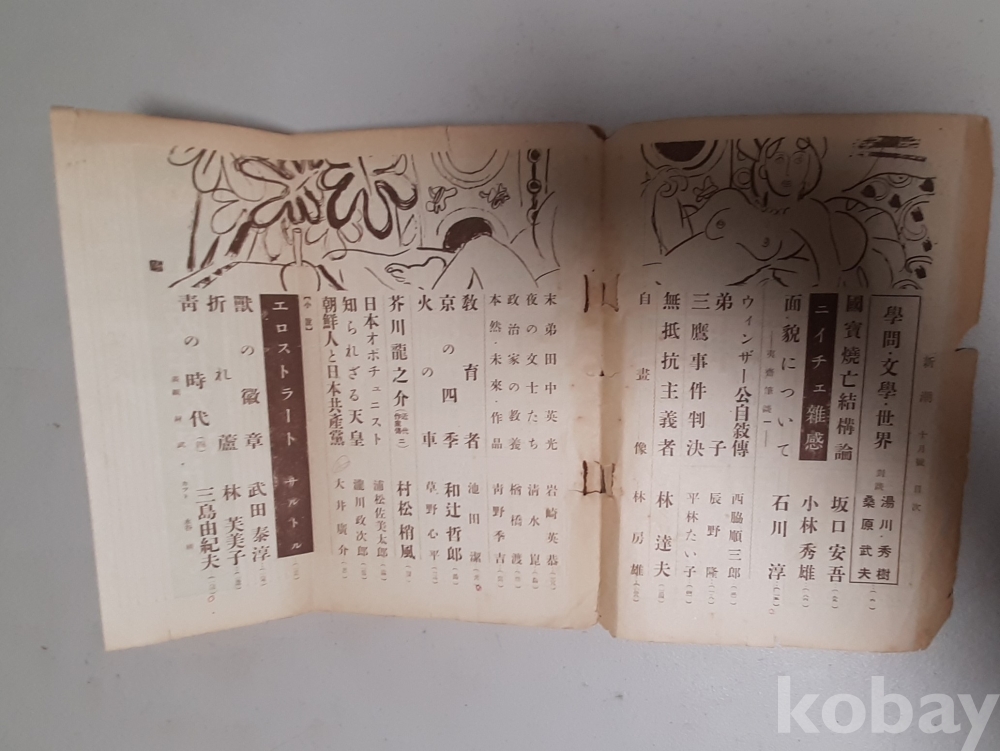 新潮 十月號 目次
學問・文學・世界 湯川秀樹 桑原武夫
國寶燒亡結構論 坂口安吾
ニイチェ雜感 小林秀雄
面貌について 石川淳
―夷齋筆談―
ウィンザー公自敍傳 西脇順三郎
弟子 辰野隆
三鷹事件判決 平林たい子
無抵抗主義者 林達夫
自畫像 林房雄
末弟田中英光 岩崎英恭
夜の文士たち 清水崑
政治家の教養 楢橋渡
本然・未來・作品 靑野季吉
敎育者 池田潔
京の四季 和辻哲郎
火の車 草野心平
芥川龍之介 村松梢風
日本オポチュニスト 浦松佐美太郎
知られざる天皇 瀧川政次郎
朝鮮人と日本共產黨 大井廣介
エロストラート サルトル
獸の徽章 武田泰淳
折れ蘆 林芙美子
靑の時代 三島由紀夫
kobay